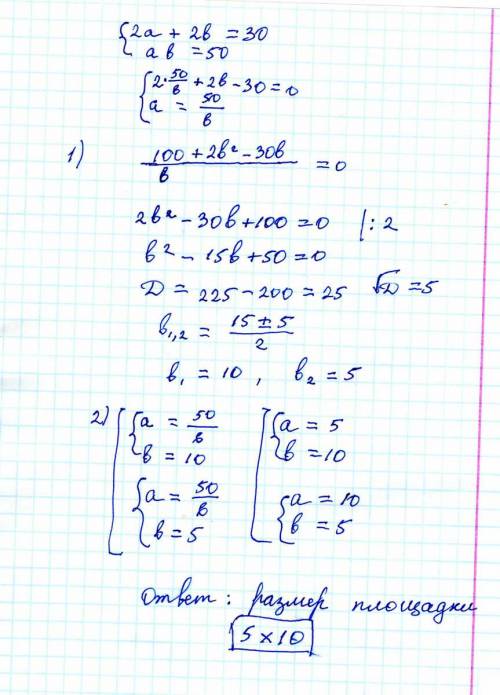 {2a + 2b = 30
ab = 50
{2·50/b + 2b − 30 = 0
a = 50/b
1) (100 + 2b² − 30b)/b = 0
2b² − 30b + 100 = 0 |: 2
b² − 15b + 50 = 0
D = 225 − 200 = 25 √D = 5
b₁,₂ = (15 ± 5)/2
b₁ = 10 , b₂ = 5
2) [ {a = 50/b [ {a = 5
b = 10 b = 10
{a = 50/b {a = 10
b = 5 b = 5
Ответ : размер площадки
5 × 10